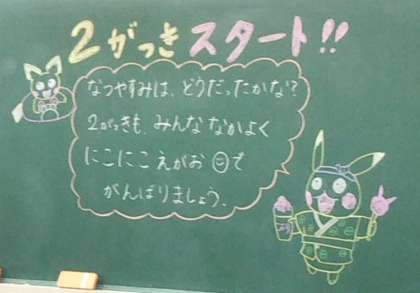 2がっきスタート!!
なつやすみは、どうだったかな?
2がっきも、みんななかよく
にこにこえがお☺で
がんばりましょう。